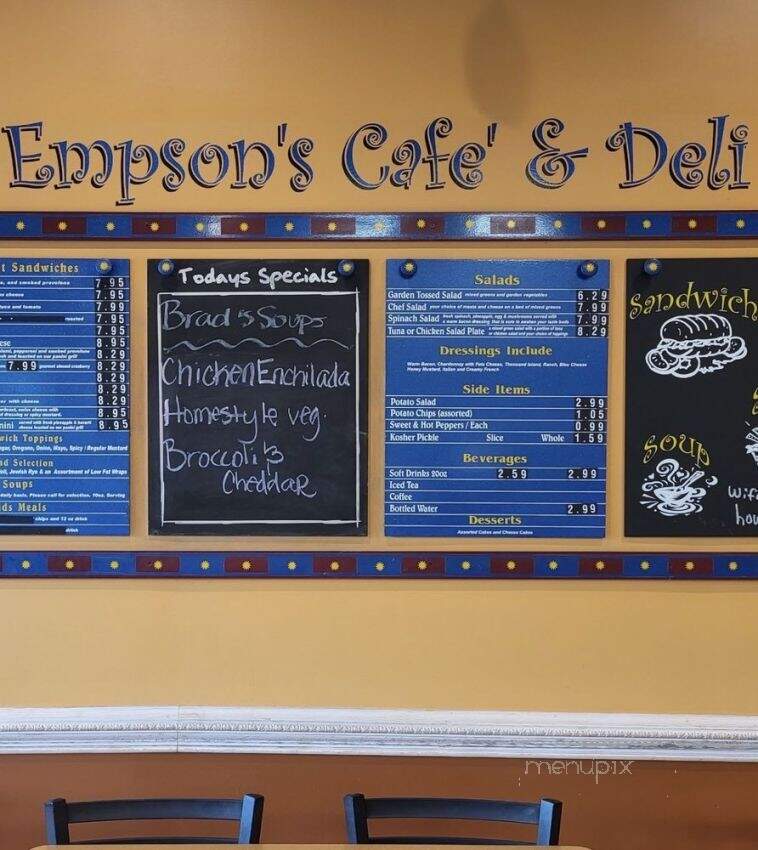 Empson's Cafe' & Deli
t Sandwiches
and smoked provolone 7.95
cheese 7.95
and tomato 7.99
7.95
7.95
8.95
8.29
7.99 8.29
8.29
8.29
with cheese 8.29
8.95
nini 8.95
wich Toppings
Oregano, Onion, Mayo, Spicy / Regular Mustard
ad Selection
Jewish Rye & an Assortment of Low Fat Wraps
Soups
daily basis. Please call for selection. 10oz. Serving
ids Meals
chips and 12 oz drink
drink
Todays Specials
Brad's Soups
Chicken Enchilada
Homestyle veg.
Broccoli &
Cheddar
Salads
Garden Tossed Salad mixed greens and garden vegetables 6.29
Chef Salad your choice of meats and cheese on a bed of mixed greens 7.99
Spinach Salad 7.99
Tuna or Chicken Salad Plate 8.29
Dressings Include
Warm Bacon, Chardonnay with Feta Cheese, Thousand Island, Ranch, Bleu Cheese
Honey Mustard, Italian and Creamy French
Side Items
Potato Salad 2.99
Potato Chips (assorted) 1.05
Sweet & Hot Peppers / Each 0.99
Kosher Pickle Slice Whole 1.59
Beverages
Soft Drinks 20oz 2.59 2.99
Iced Tea
Coffee
Bottled Water 2.99
Desserts
Assorted Cakes and Cheese Cakes
Sandwich
Soup
Wifi
hou
menupix